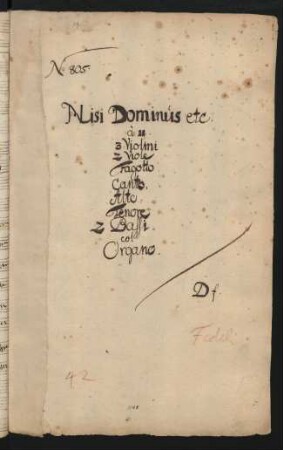 N. 805.
Nisi Dominus etc.
à 11
3 Violini
2 Viole
Fagotto
Canto.
Alto.
Tenore
2 Bassi
col
Organo.
Df.
Fedeli
42